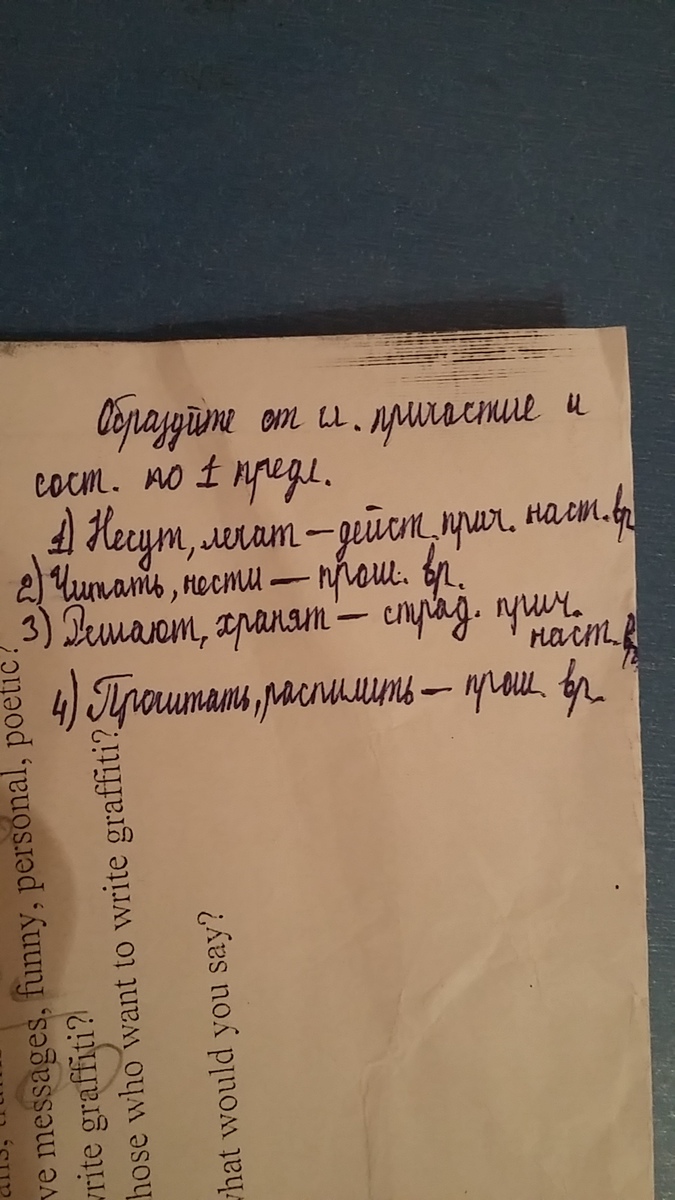 Образуйте от гл. причастие и
сост. по 1 предл.
1) Несут, лечат – дейст. прич. наст. вр
2) Читать, нести – прош. вр.
3) Решают, хранят – страд. прич.
наст. вр
4) Прочитать, распилить – прош. вр.
ve messages, funny, personal, poetic?
write graffiti?
hose who want to write graffiti?
what would you say?